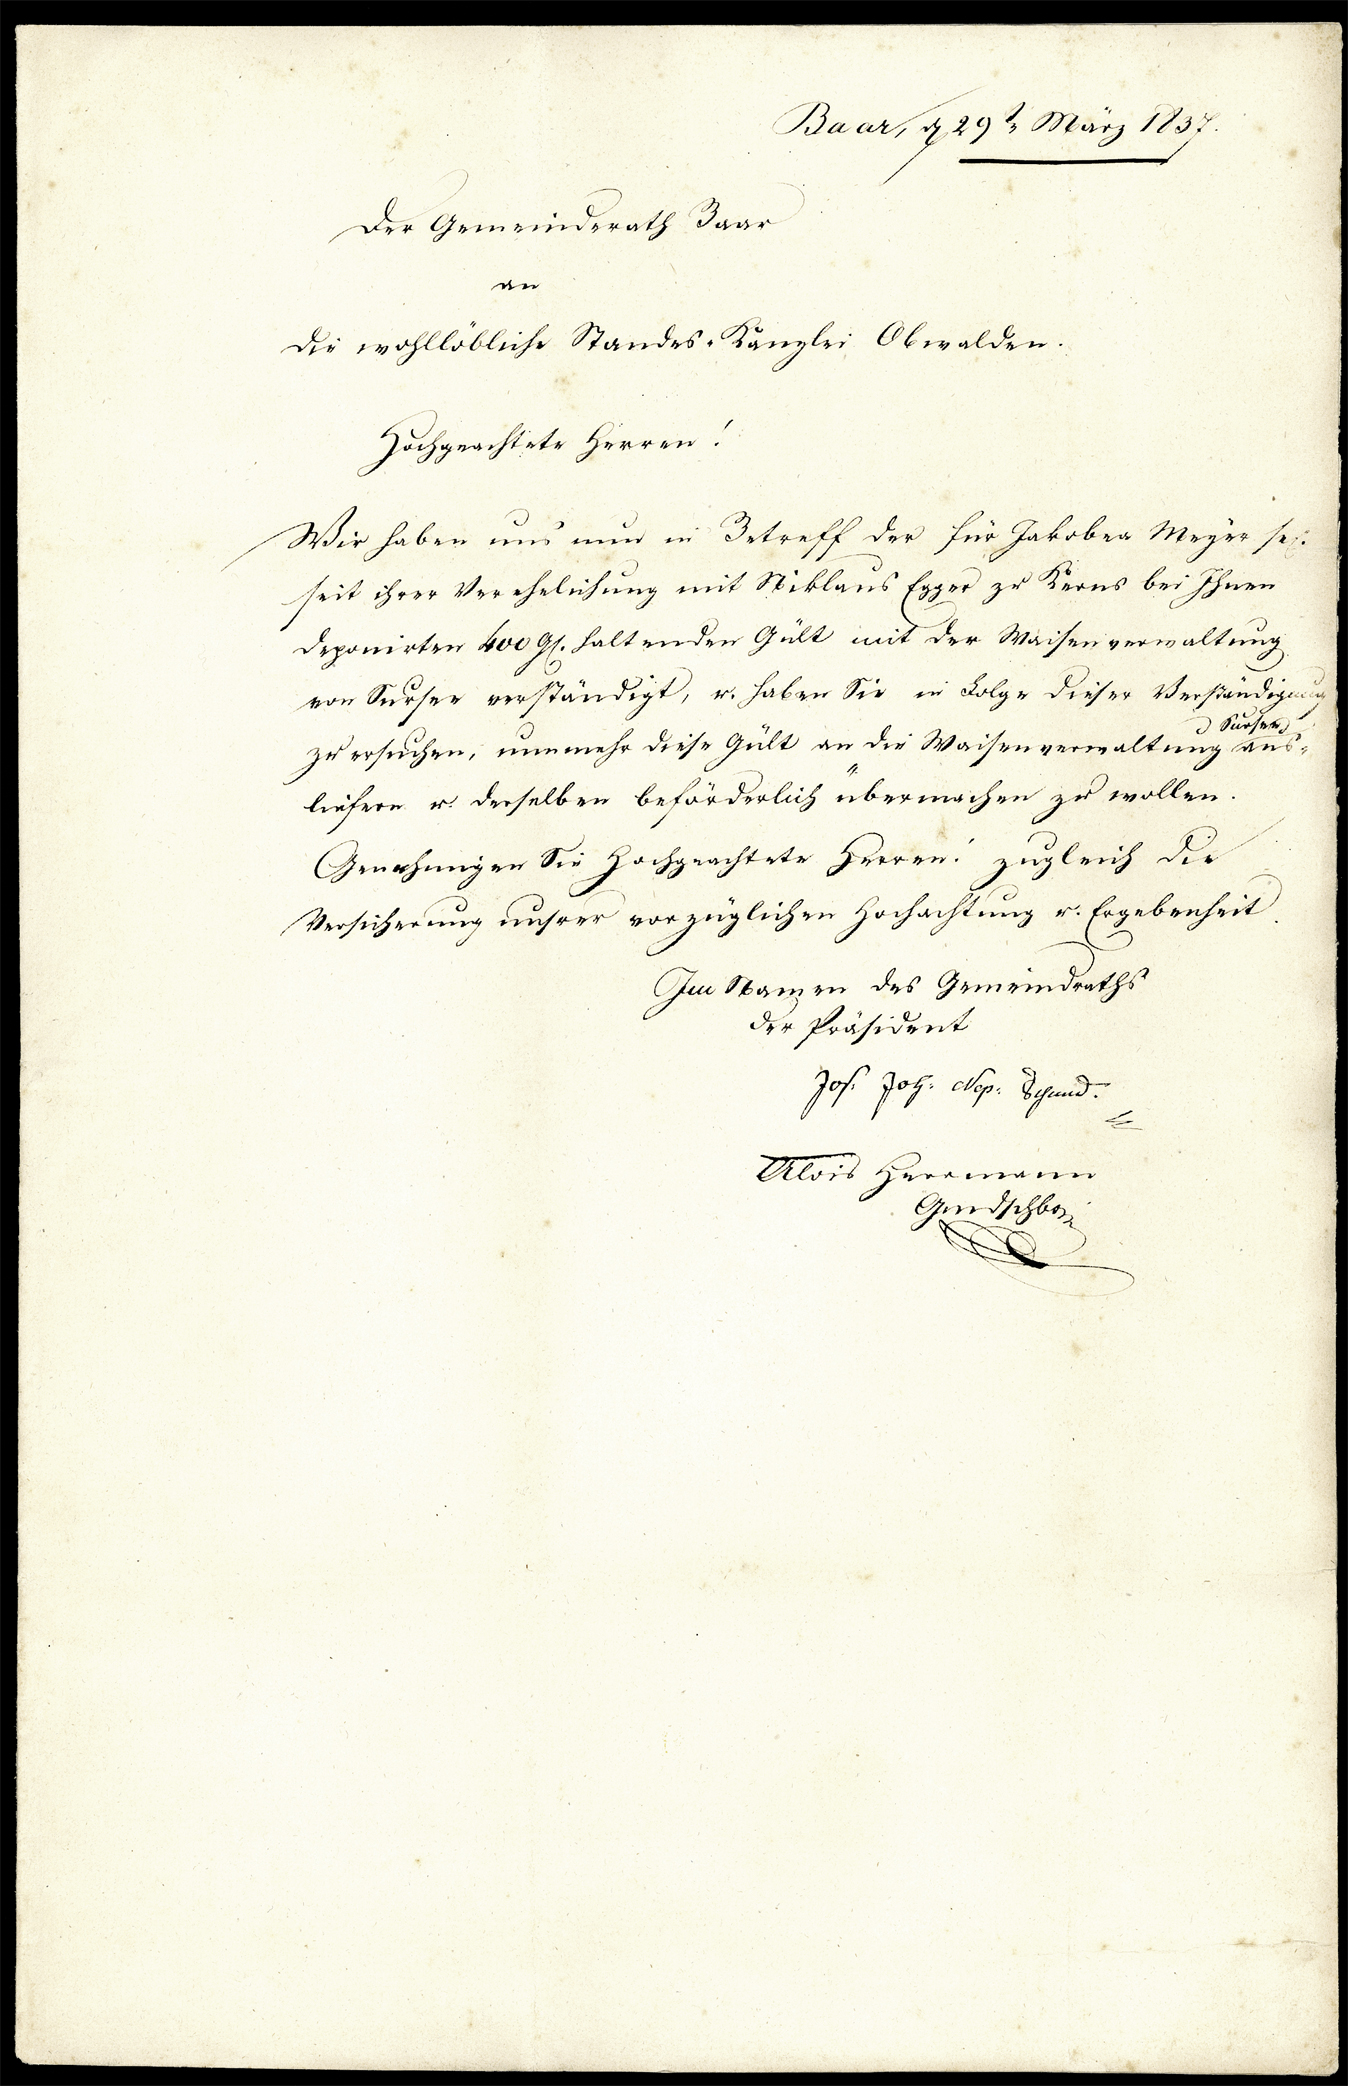 Baar, d 29t März 1837.
Der Gemeinderath Baar
an
die wohllöbliche Standes-Kanzlei Obwalden.
Hochgeachtete Herren!
Wir haben uns nun in Betreff der für Jakobea Meÿer sel.
seit ihrer Verehelichung mit Niklaus Egger zu Kerns bei Ihnen
deponirten 400 Gl. haltenden Gült mit der Waisenverwaltung
von Sursee verständigt, u. haben Sie in Folge dieser Verständigung
zu ersuchen, nunmehr diese Gült an die Waisenverwaltung Sursee aus-
liefern u. derselben beförderlich übermachen zu wollen.
Genehmigen Sie Hochgeachtete Herren! zugleich die
Versicherung unsrer vorzüglichen Hochachtung u. Ergebenheit.
Im Namen des Gemeindraths
der Präsident
Jos. Joh. Nep. Schmid.
Alois Herrmann
Gmdschbr